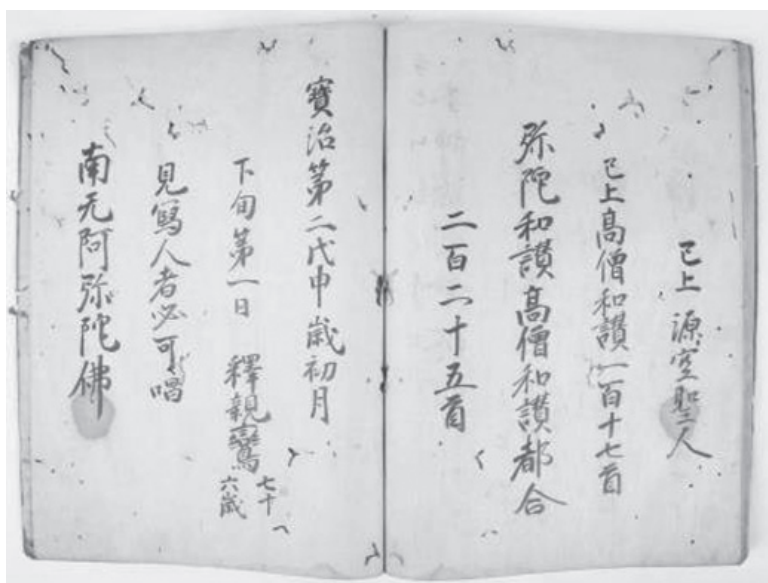 已上源空聖人
已上高僧和讃一百十七首
弥陀和讃高僧和讃都合
二百二十五首
寳治第二戊申歳初月
下旬第一日 釋親鸞七十六歳
見寫人者必可唱
南无阿弥陀佛